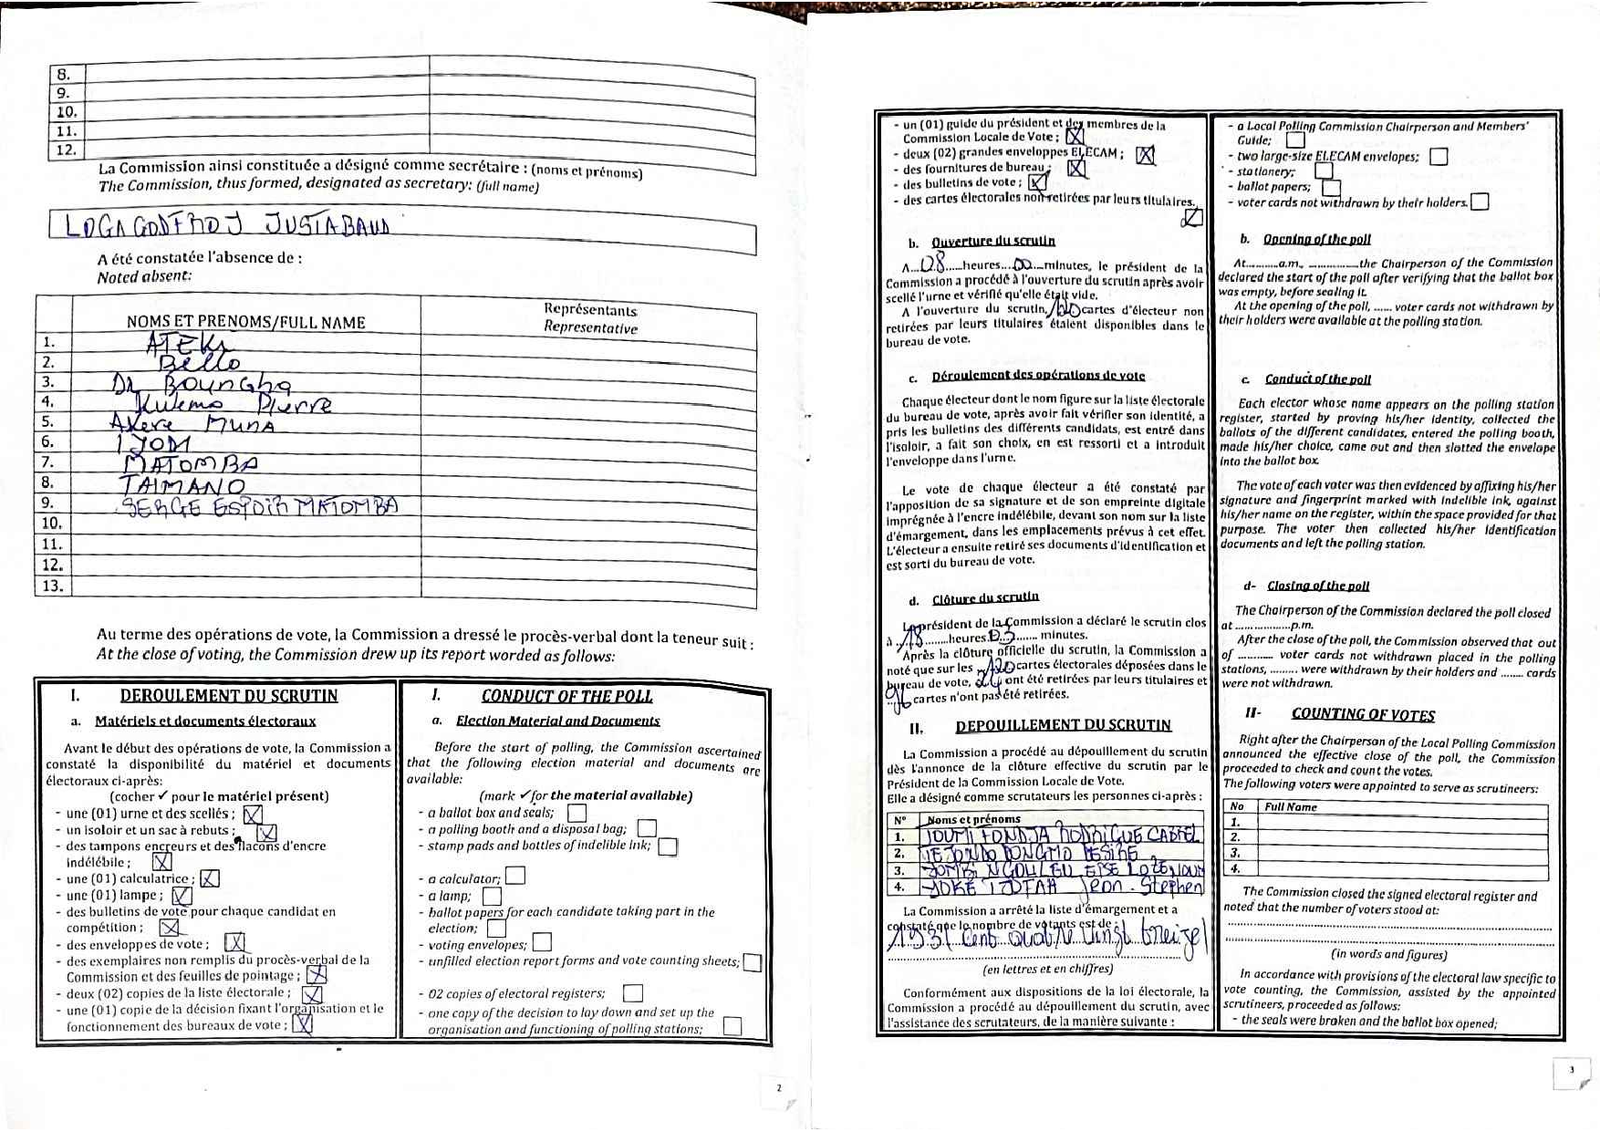 8.
9.
10.
11.
12.
La Commission ainsi constituée a désigné comme secrétaire : (noms et prénoms)
The Commission, thus formed, designated as secretary: (full name)
LOGA GODFROY JUSTABAUD
A été constatée l'absence de :
Noted absent:
NOMS ET PRENOMS/FULL NAME
Représentants
Representative
1. ATEKI
2. Bello
3. Dr Boungha
4. Kuemo Pierre
5. Akere MUNA
6. IYOM
7. MATOMBA
8. TAIMANO
9. SERGE ESPOIR MATOMBA
10.
11.
12.
13.
Au terme des opérations de vote, la Commission a dressé le procès-verbal dont la teneur suit :
At the close of voting, the Commission drew up its report worded as follows:
I. DEROULEMENT DU SCRUTIN
a. Matériels et documents électoraux
Avant le début des opérations de vote, la Commission a
constaté la disponibilité du matériel et documents
électoraux ci-après:
(cocher ✓ pour le matériel présent)
- une (01) urne et des scellés ;
- un isoloir et un sac à rebuts ;
- des tampons encreurs et des flacons d'encre
indélébile ;
- une (01) calculatrice ;
- une (01) lampe ;
- des bulletins de vote pour chaque candidat en
compétition ;
- des enveloppes de vote ;
- des exemplaires non remplis du procès-verbal de la
Commission et des feuilles de pointage ;
- deux (02) copies de la liste électorale ;
- une (01) copie de la décision fixant l'organisation et le
fonctionnement des bureaux de vote ;
I. CONDUCT OF THE POLL
a. Election Material and Documents
Before the start of polling, the Commission ascertained
that the following election material and documents are
available:
(mark ✓ for the material available)
- a ballot box and seals;
- a polling booth and a disposal bag;
- stamp pads and bottles of indelible ink;
- a calculator;
- a lamp;
- ballot papers for each candidate taking part in the
election;
- voting envelopes;
- unfilled election report forms and vote counting sheets;
- 02 copies of electoral registers;
- one copy of the decision to lay down and set up the
organisation and functioning of polling stations;
2
- un (01) guide du président et des membres de la
Commission Locale de Vote ;
- deux (02) grandes enveloppes ELECAM ;
- des fournitures de bureau ;
- des bulletins de vote ;
- des cartes électorales non retirées par leurs titulaires.
b. Ouverture du scrutin
A 08 heures 00 minutes, le président de la
Commission a procédé à l'ouverture du scrutin après avoir
scellé l'urne et vérifié qu'elle était vide.
A l'ouverture du scrutin, 120 cartes d'électeur non
retirées par leurs titulaires étaient disponibles dans le
bureau de vote.
c. Déroulement des opérations de vote
Chaque électeur dont le nom figure sur la liste électorale
du bureau de vote, après avoir fait vérifier son identité, a
pris les bulletins des différents candidats, est entré dans
l'isoloir, a fait son choix, en est ressorti et a introduit
l'enveloppe dans l'urne.
Le vote de chaque électeur a été constaté par
l'apposition de sa signature et de son empreinte digitale
imprégnée à l'encre indélébile, devant son nom sur la liste
d'émargement, dans les emplacements prévus à cet effet.
L'électeur a ensuite retiré ses documents d'identification et
est sorti du bureau de vote.
d. Clôture du scrutin
Le président de la Commission a déclaré le scrutin clos
à 18 heures 03 minutes.
Après la clôture officielle du scrutin, la Commission a
noté que sur les 120 cartes électorales déposées dans le
bureau de vote, 24 ont été retirées par leurs titulaires et
96 cartes n'ont pas été retirées.
II. DEPOUILLEMENT DU SCRUTIN
La Commission a procédé au dépouillement du scrutin
dès l'annonce de la clôture effective du scrutin par le
Président de la Commission Locale de Vote.
Elle a désigné comme scrutateurs les personnes ci-après :
N° Noms et prénoms
1. TOUMI FONDJA RODRIGUE CABREL
2. DONGMO DESIRE
3. NGOULEU
4. Jean - Stephen
La Commission a arrêté la liste d'émargement et a
constaté que le nombre de votants est de :
193 (cent quatre vingt treize)
(en lettres et en chiffres)
Conformément aux dispositions de la loi électorale, la
Commission a procédé au dépouillement du scrutin, avec
l'assistance des scrutateurs, de la manière suivante :
- a Local Polling Commission Chairperson and Members'
Guide;
- two large-size ELECAM envelopes;
- stationery;
- ballot papers;
- voter cards not withdrawn by their holders.
b. Opening of the poll
At............a.m., ................the Chairperson of the Commission
declared the start of the poll after verifying that the ballot box
was empty, before sealing it.
At the opening of the poll, ...... voter cards not withdrawn by
their holders were available at the polling station.
c. Conduct of the poll
Each elector whose name appears on the polling station
register, started by proving his/her identity, collected the
ballots of the different candidates, entered the polling booth,
made his/her choice, came out and then slotted the envelope
into the ballot box.
The vote of each voter was then evidenced by affixing his/her
signature and fingerprint marked with indelible ink, against
his/her name on the register, within the space provided for that
purpose. The voter then collected his/her identification
documents and left the polling station.
d- Closing of the poll
The Chairperson of the Commission declared the poll closed
at ..................p.m.
After the close of the poll, the Commission observed that out
of ............ voter cards not withdrawn placed in the polling
stations, ......... were withdrawn by their holders and ........ cards
were not withdrawn.
II- COUNTING OF VOTES
Right after the Chairperson of the Local Polling Commission
announced the effective close of the poll, the Commission
proceeded to check and count the votes.
The following voters were appointed to serve as scrutineers:
No Full Name
1.
2.
3.
4.
The Commission closed the signed electoral register and
noted that the number of voters stood at:
(in words and figures)
In accordance with provisions of the electoral law specific to
vote counting, the Commission, assisted by the appointed
scrutineers, proceeded as follows:
- the seals were broken and the ballot box opened;
3